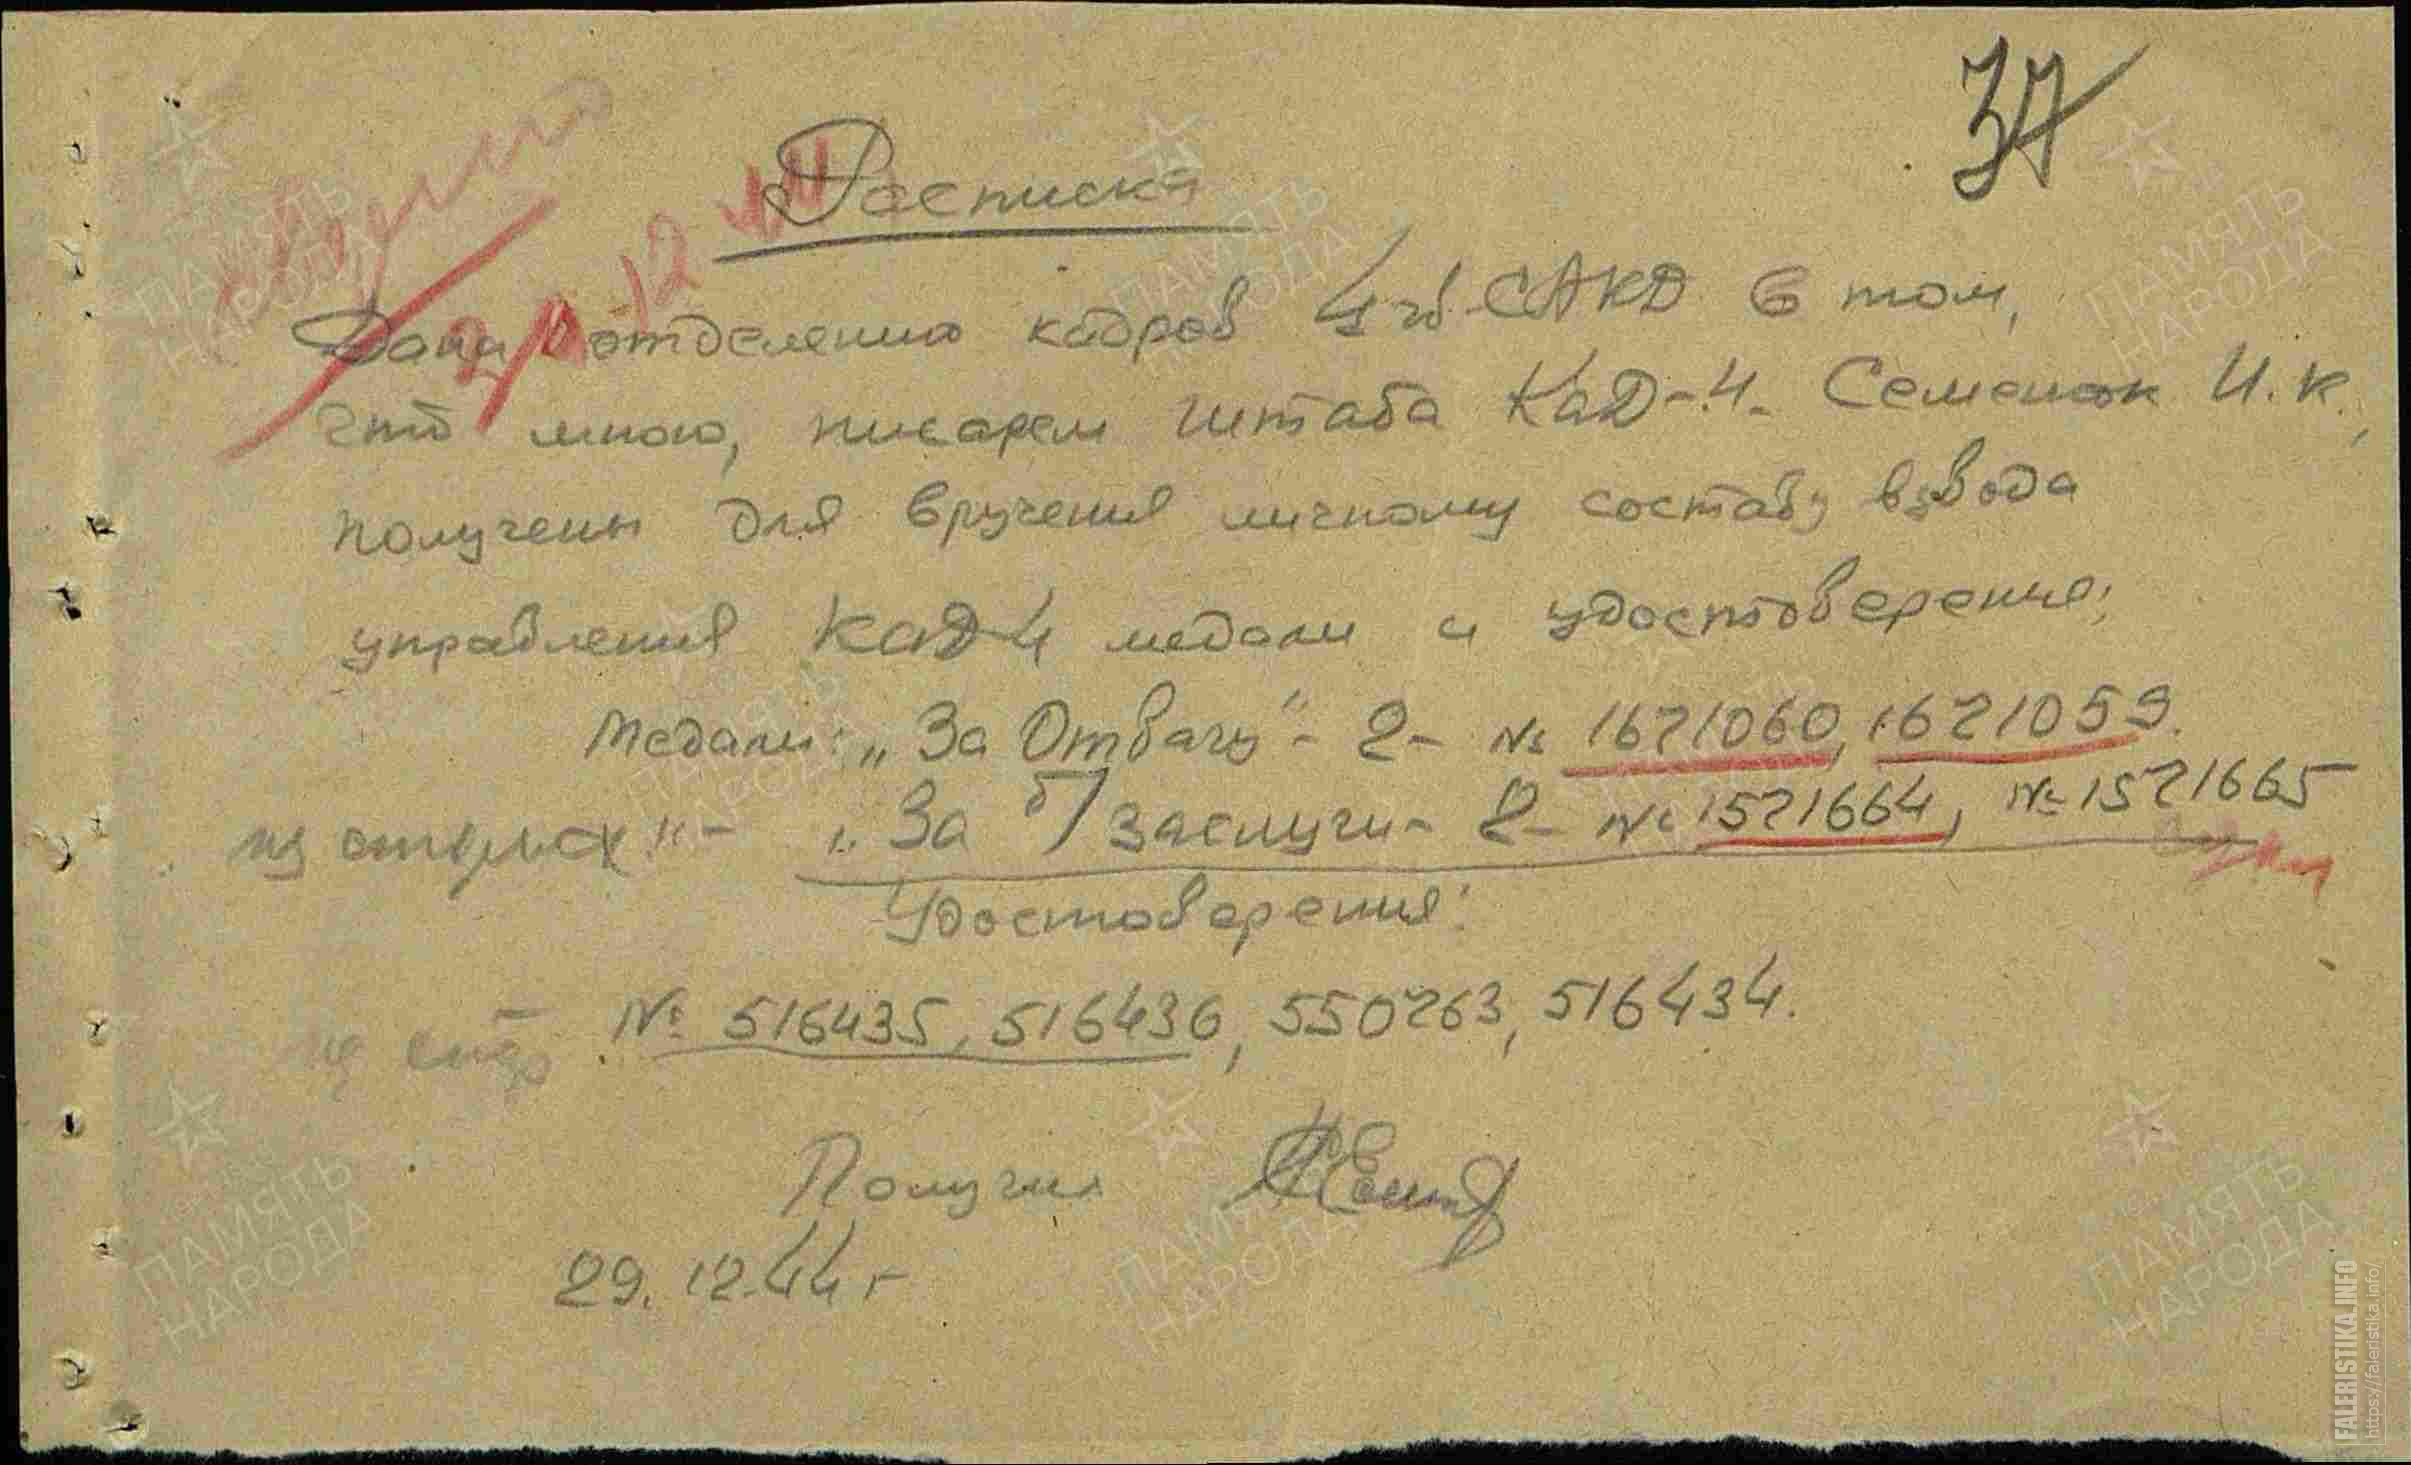 37
Расписка
Дана отделению кадров 4 гв САКД в том,
что мною, писарем штаба КАД-4- Семенюк И.К.,
получены для вручения личному составу взвода
управления КАД-4 медали и удостоверения:
Медали: "За Отвагу" - 2 - № 1621060, 1621059.
"За б/заслуги - 2 - № 1521664, № 1521665
Удостоверения:
№ 516435, 516436, 550263, 516434.
Получил
29.12.44 г
ПАМЯТЬ НАРОДА
FALERISTIKA.INFO
https://faleristika.info/